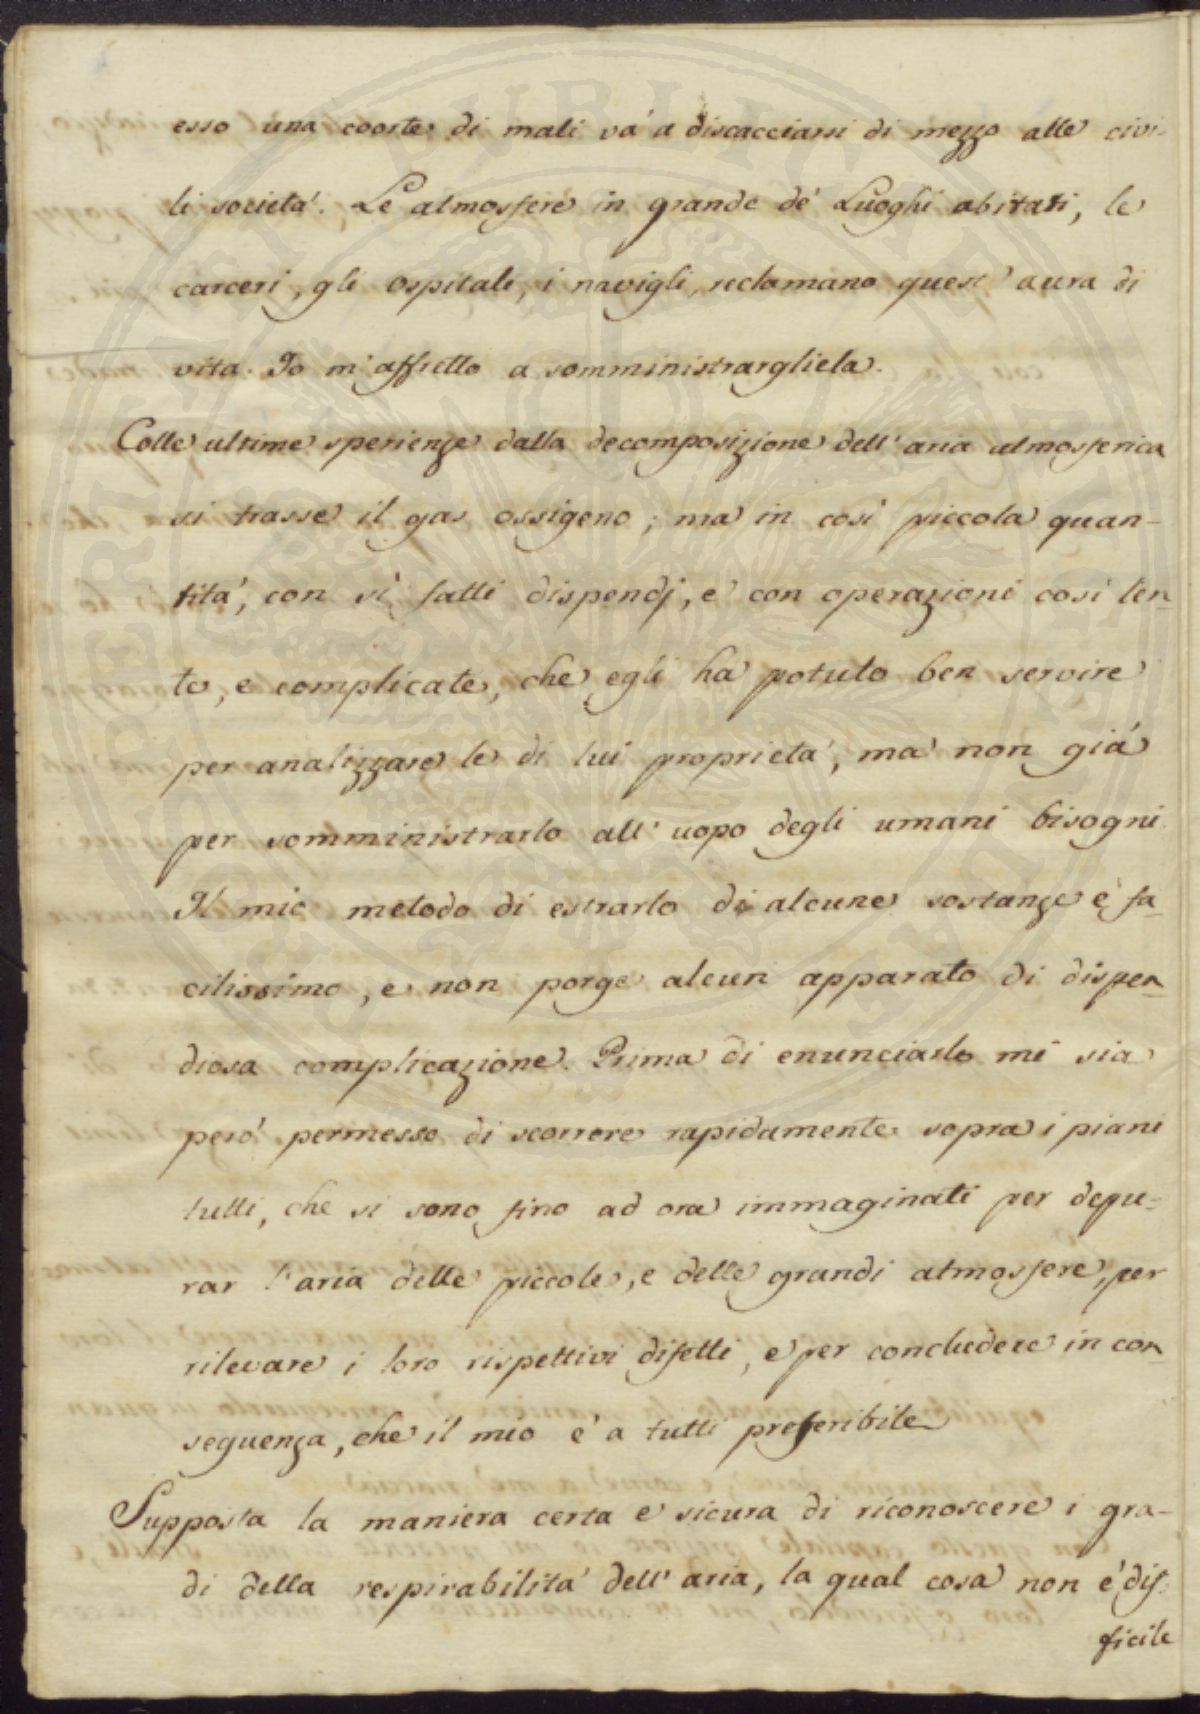 esso una coorte di mali va' a discacciarsi di mezzo alle civi-
li società. Le atmosfere in grande de' Luoghi abitati, le
carceri, gli Ospitali, i navigli, reclamano quest' aura di
vita. Io m'affretto a somministrargliela.
Colle ultime sperienze dalla decomposizione dell'aria atmosferica
si trasse il gas ossigeno; ma in così piccola quan-
tità, con sì fatti dispendj, e con operazioni così len-
te, e complicate, che egli ha potuto ben servire
per analizzare le di lui proprietà, ma non già
per somministrarlo all' uopo degli umani bisogni.
Il mio metodo di estrarlo da alcune sostanze è fa-
cilissimo, e non porge alcun apparato di dispen-
diosa complicazione. Prima di enunciarlo mi sia
però permesso di scorrere rapidamente sopra i piani
tutti, che si sono fino ad ora immaginati per depu-
rar l'aria delle piccole, e delle grandi atmosfere, per
rilevare i loro rispettivi difetti, e per concludere in con-
seguenza, che il mio è a tutti preferibile
Supposta la maniera certa e sicura di riconoscere i gra-
di della respirabilità dell'aria, la qual cosa non è dif-
ficile